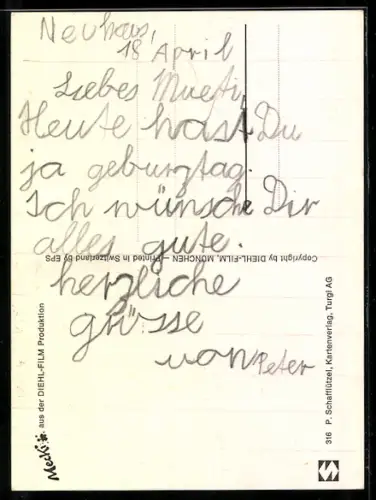 Neuhaus,
18 April
Liebes Mueti,
Heute hast Du
ja geburztag.
Ich wünsche Dir
alles gute.
herzliche
grüsse
von Peter
Copyright by DIEHL-FILM, MÜNCHEN – Printed in Switzerland by EPS
Mecki aus der DIEHL-FILM Produktion
316 P. Schafflützel, Kartenverlag, Turgi AG